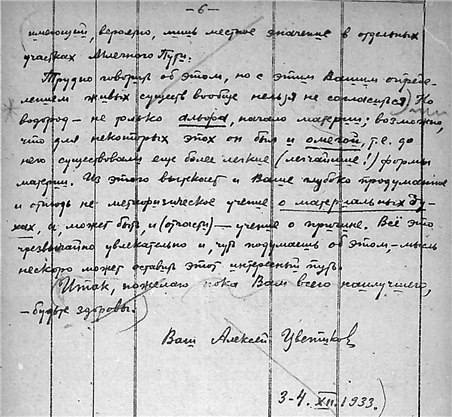 –6–
имеющий, вероятно, лишь местное значение в отдельных
участках Млечного Пути.
Трудно говорить об этом, но с этим Вашим опреде-
лением живых существ вообще нельзя не согласиться) Но
водород – не только альфа, начало материи; возможно,
что для некоторых эпох он был и омегой, т.е. до
него существовали еще более легкие (легчайшие!) формы
материи. Из этого вытекает и Ваше глубоко продуманное
и отнюдь не метафизическое учение о материальных ду-
хах, а может быть и (отчасти) – учение о причине. Всё это
чрезвычайно увлекательно и, чуть подумаешь об этом, – мысль
нескоро может оставить этот интересный путь.
(Итак, пожелаю пока Вам всего наилучшего,
– будьте здоровы.
Ваш Алексей Цветиков
3-4. XII. 1933.)